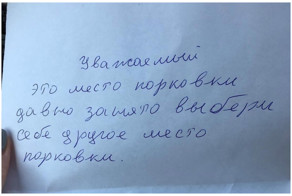 Уважаемый
это место порковки
давно занято выбери
себе другое место
порковки.